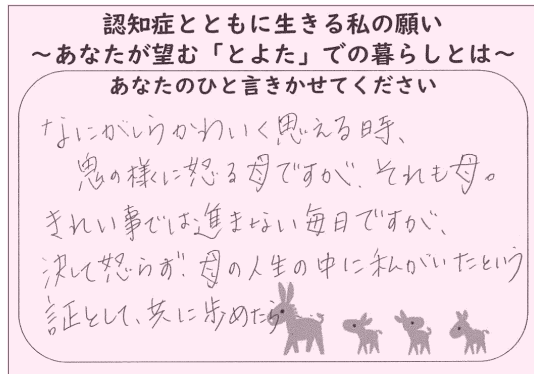 認知症とともに生きる私の願い
～あなたが望む「とよた」での暮らしとは～
あなたのひと言きかせてください
なにがしらかわいく思える時、
鬼の様に怒る母ですが、それも母。
きれい事では進まない毎日ですが、
決して怒らず!母の人生の中に私がいたという
証として、共に歩めたら